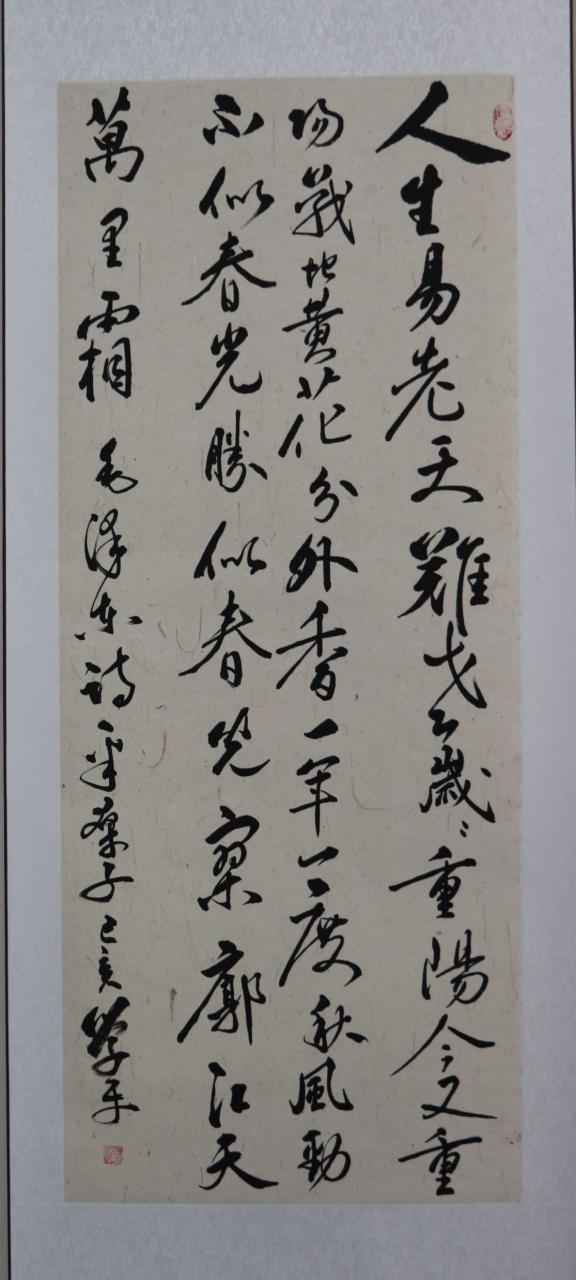 人生易老天難老歲〻重陽今又重
陽戰地黃花分外香一年一度秋風勁
不似春光勝似春光寥廓江天
萬里霜 毛澤東詩采桑子己亥學平